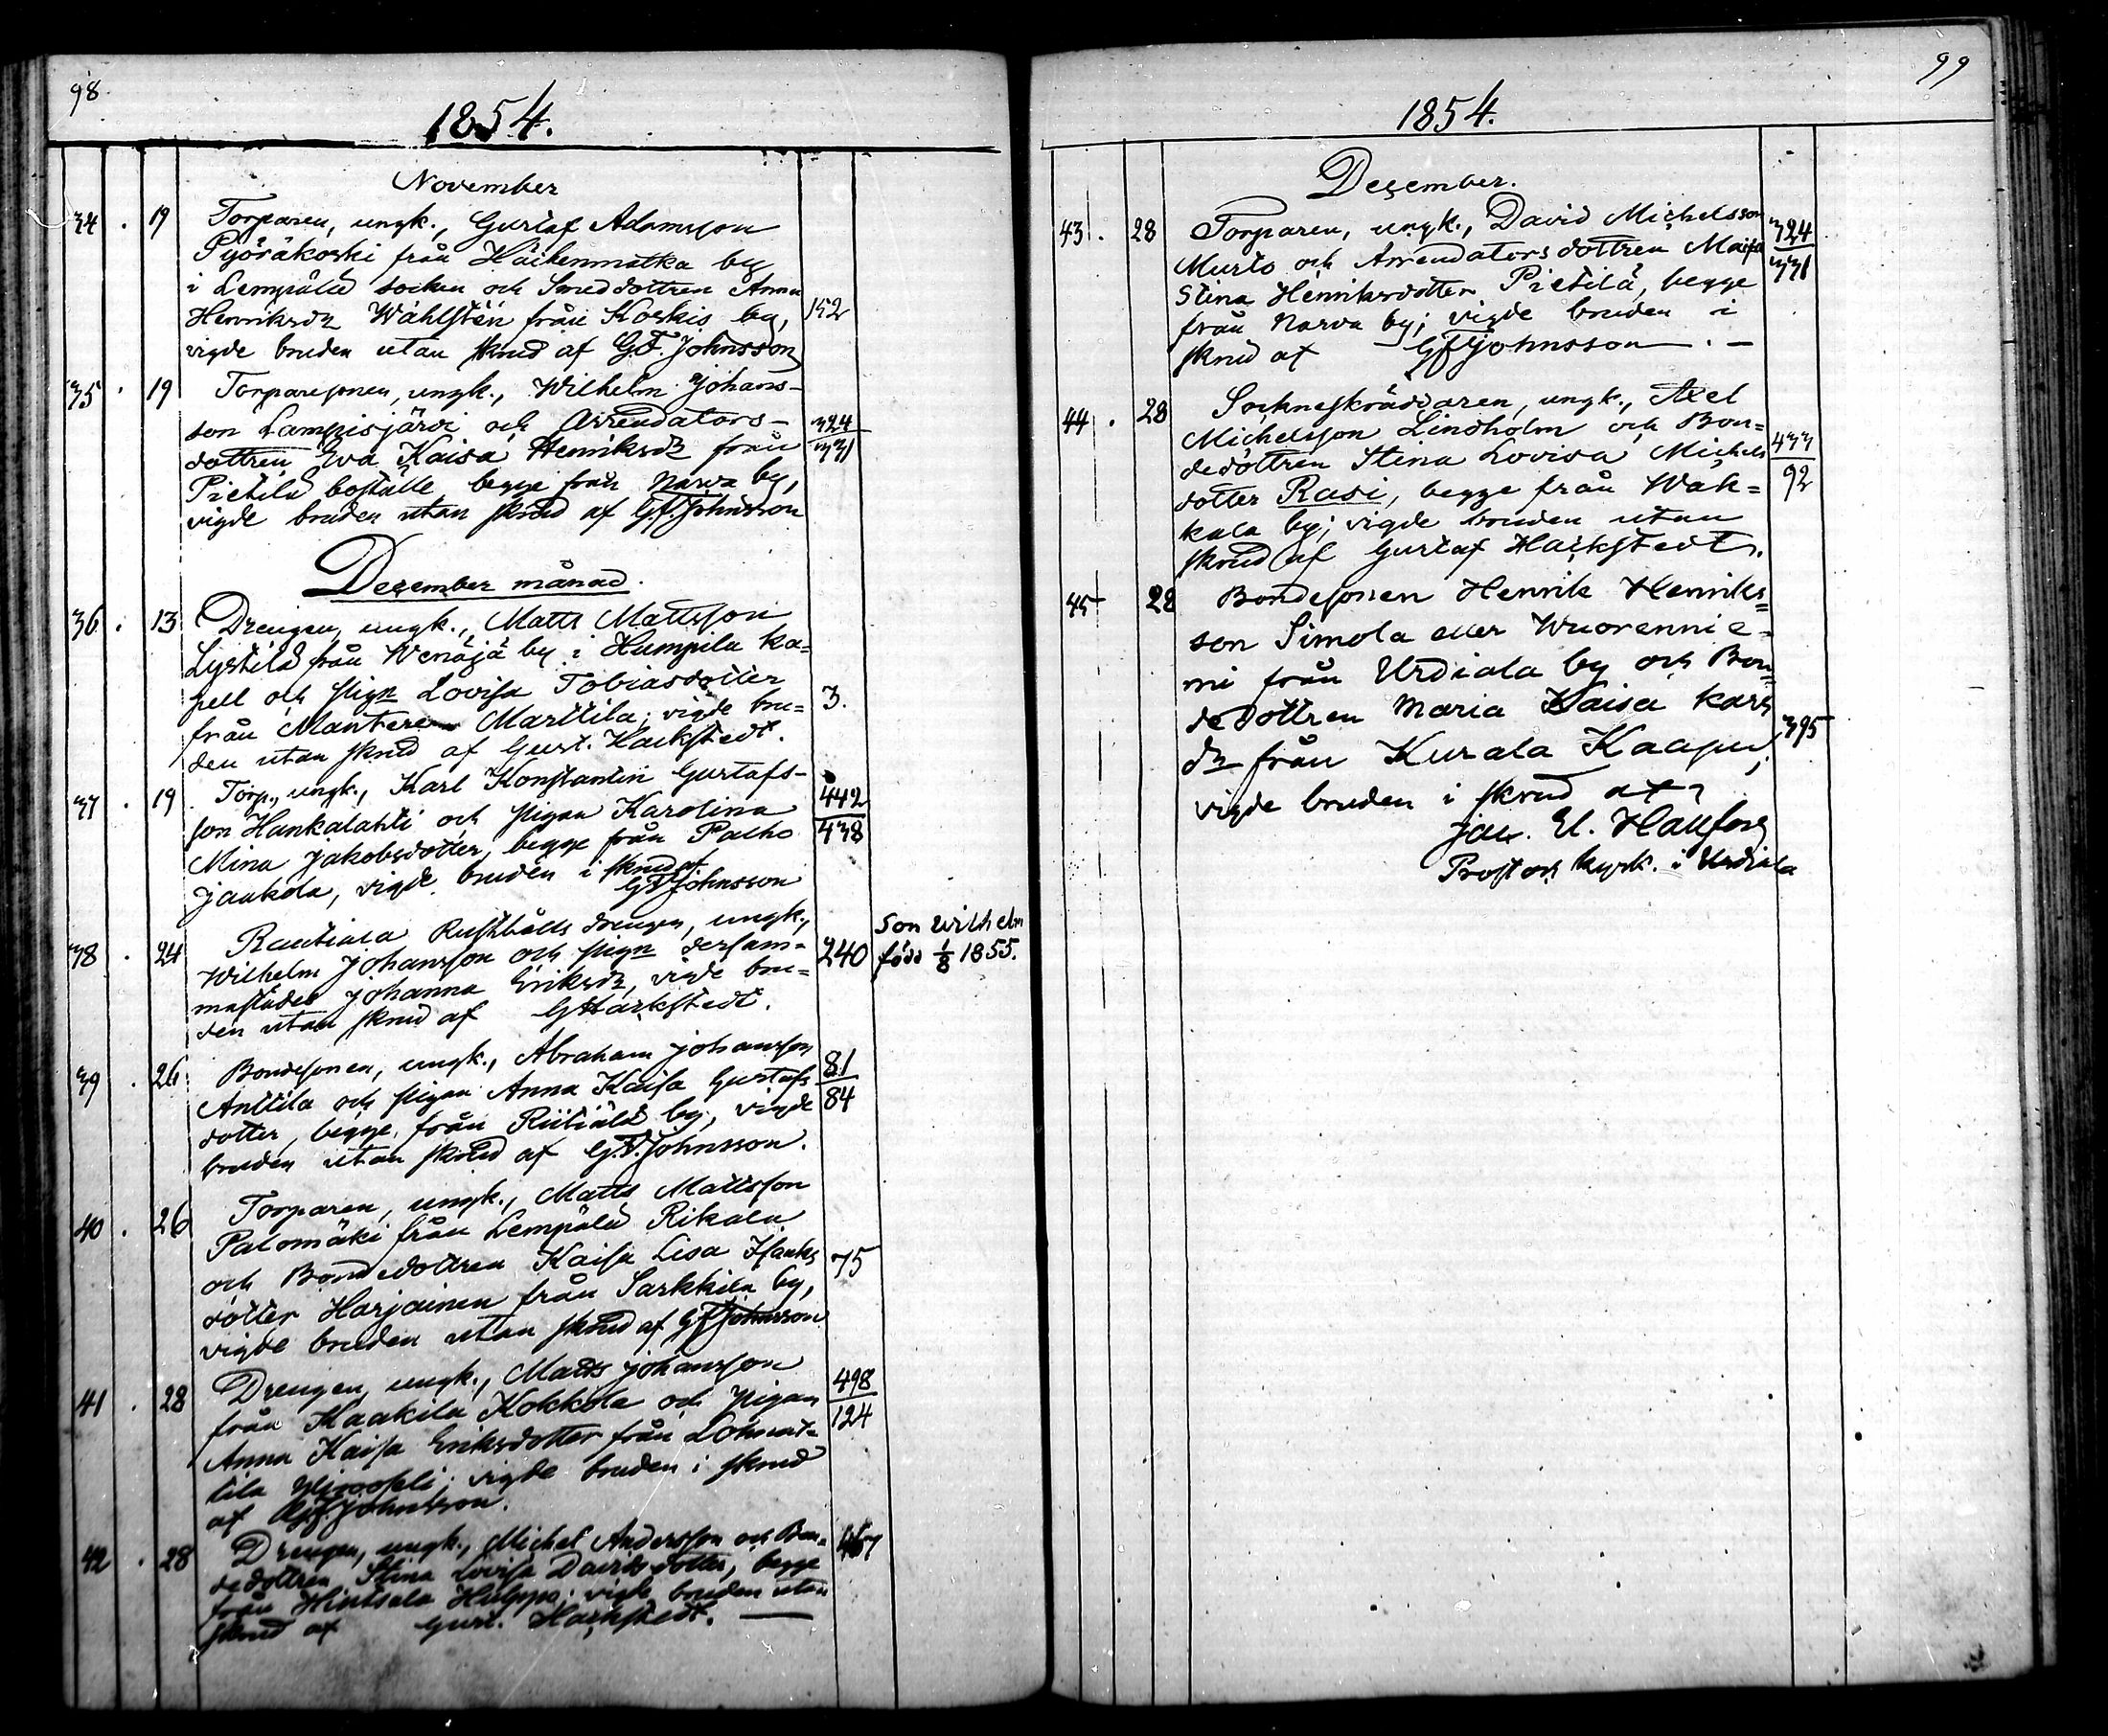 98
1854.
November
34 . 19 Torparen, ungk., Gustaf Adamsson
Pyöräkoski från Häihenmatka by
i Lempälä socken och Smeddottren Anna
Henriksdr Wahlstén från Koskis by, 152
vigde bruden utan skrud af G.F. Johnsson
35 . 19 Torparesonen, ungk., Wilhelm Johans-
son Lampisjärvi och Arrendators- 324
dottren Eva Kaisa Henriksdr från 331
Pietilä boställe begge från Narva by,
vigde bruden utan skrud af G.F. Johnsson
December månad.
36 . 13 Drengen, ungk., Matts Mattsson
Lystilä från Wenäjä by i Humpila ka=
pell och pign Lovisa Tobiasdotter 3.
från Mantere Marttila; vigde bru=
den utan skrud af Gust. Hackstedt.
37 . 19 Torp., ungk., Karl Konstantin Gustafs- 442
son Hankalahti och pigan Karolina 438
Mina Jakobsdotter, begge från Palho
Jaakola, vigde bruden i skrud af
GFJohnsson
38 . 24 Rautiala Rusthålls drengen, ungk.,
Wilhelm Johansson och pign dersam= 240
mastädes Johanna Eriksdr, vigde bru=
den utan skrud af GHackstedt.
son Wilhelm
född 1/8 1855.
39 . 26 Bondesonen, ungk., Abraham Johansson 81
Anttila och pigan Anna Kaisa Gustafs 84
dotter, begge från Riitiälä by, vigde
bruden utan skrud af G.F. Johnsson.
40 . 26 Torparen, ungk., Matts Mattsson
Palomäki från Lempälä Rikala
och Bondedottren Kaisa Lisa Isaks 75
dotter Harjainen från Sarkkila by,
vigde bruden utan skrud af GFJohnsson
41 . 28 Drengen, ungk., Matts Johansson 498
från Kaakila Kokkola och pigan 124
Anna Kaisa Eriksdotter från Lohnat-
tila vigde bruden i skrud
af GFJohnsson.
42 . 28 Drengen, ungk., Michel Andersson och Bon= 467
dedottren Stina Lovisa Davidsdotter, begge
från Huitsala Hulppo; vigde bruden utan
skrud af Gust. Hackstedt.
99
1854.
December.
43 . 28 Torparen, ungk., David Michelsson 324
Murto och Arrendatorsdottren Maja 331
Stina Henriksdotter Pietilä, begge
från Narva by; vigde bruden i
skrud af GFJohnsson. —
44 . 28 Sockneskräddaren, ungk., Axel
Michelsson Lindholm och Bon= 433
dedottren Stina Lovisa Michels 92
dotter Rasi, begge från Wah=
kala by; vigde bruden utan
skrud af Gustaf Hackstedt.
45 28 Bondesonen Henrik Henriks=
son Simola eller Wuorennie=
mi från Urdiala by och Bon=
dedottren Maria Kaisa Karls 395
dr från Kurala Kaapu,
vigde bruden i skrud af
Jac. El. Hallfors
Prost och kyrk. i Urdiala